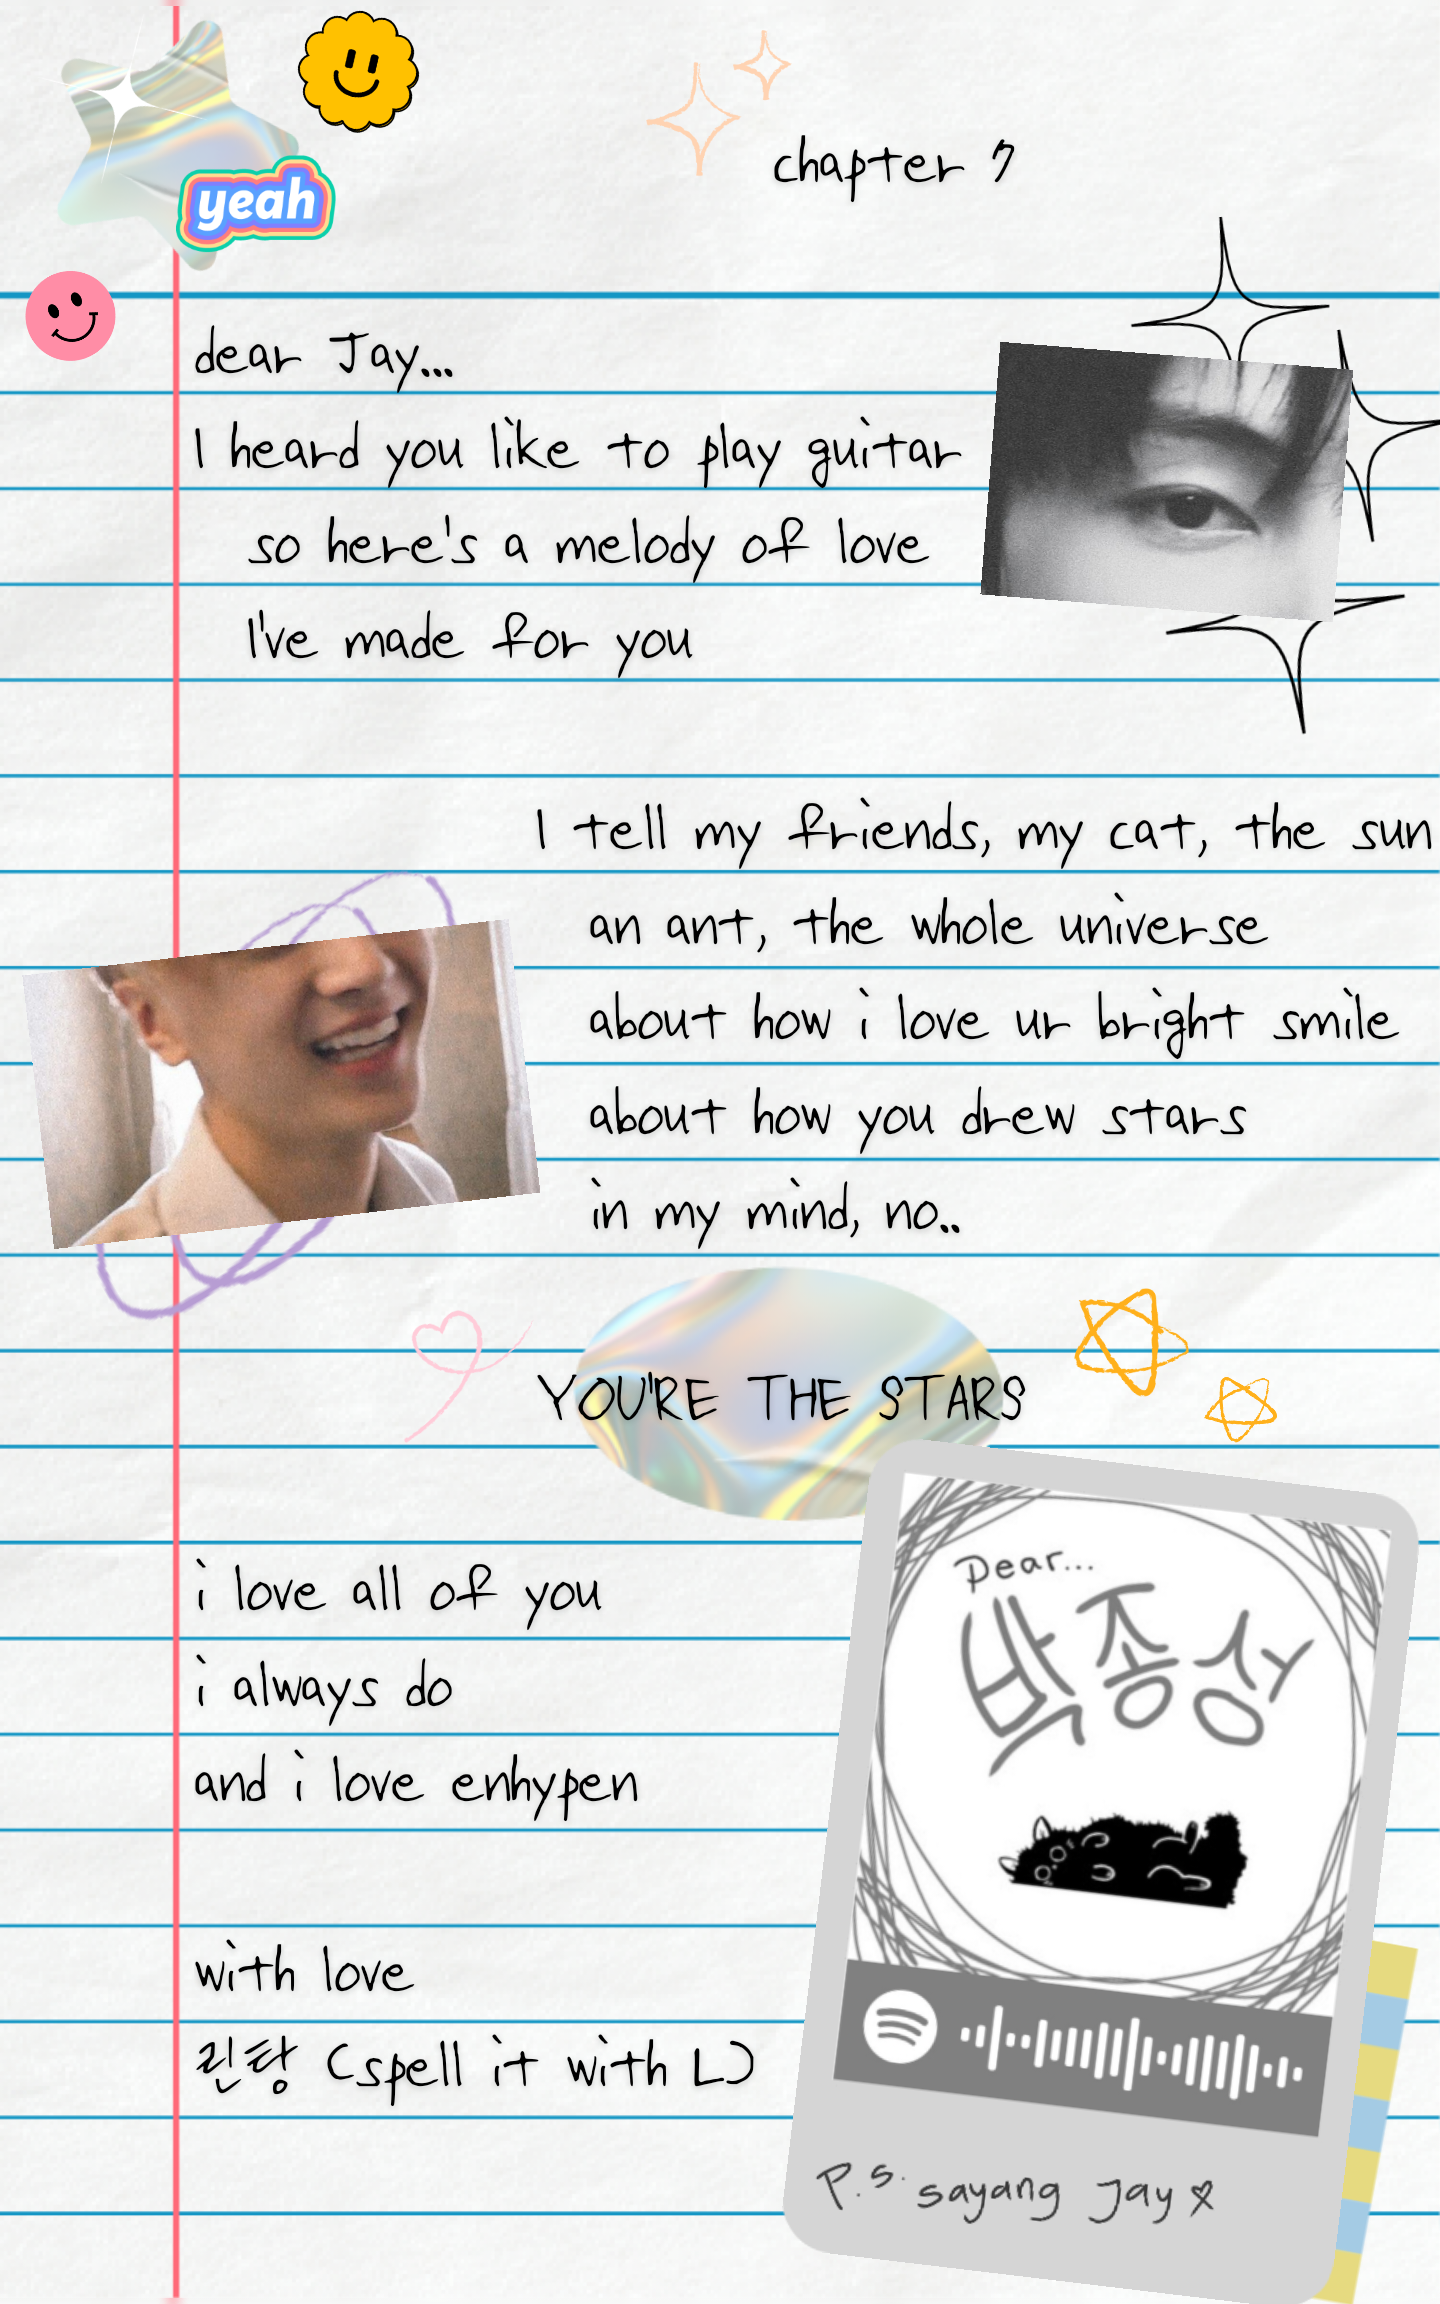 yeah
chapter 7
dear Jay...
I heard you like to play guitar
so here's a melody of love
I've made for you
I tell my friends, my cat, the sun
an ant, the whole universe
about how i love ur bright smile
about how you drew stars
in my mind, no..
YOU'RE THE STARS
i love all of you
i always do
and i love enhypen
with love
린탕 (spell it with L)
Dear...
박종성
P.s. sayang Jay